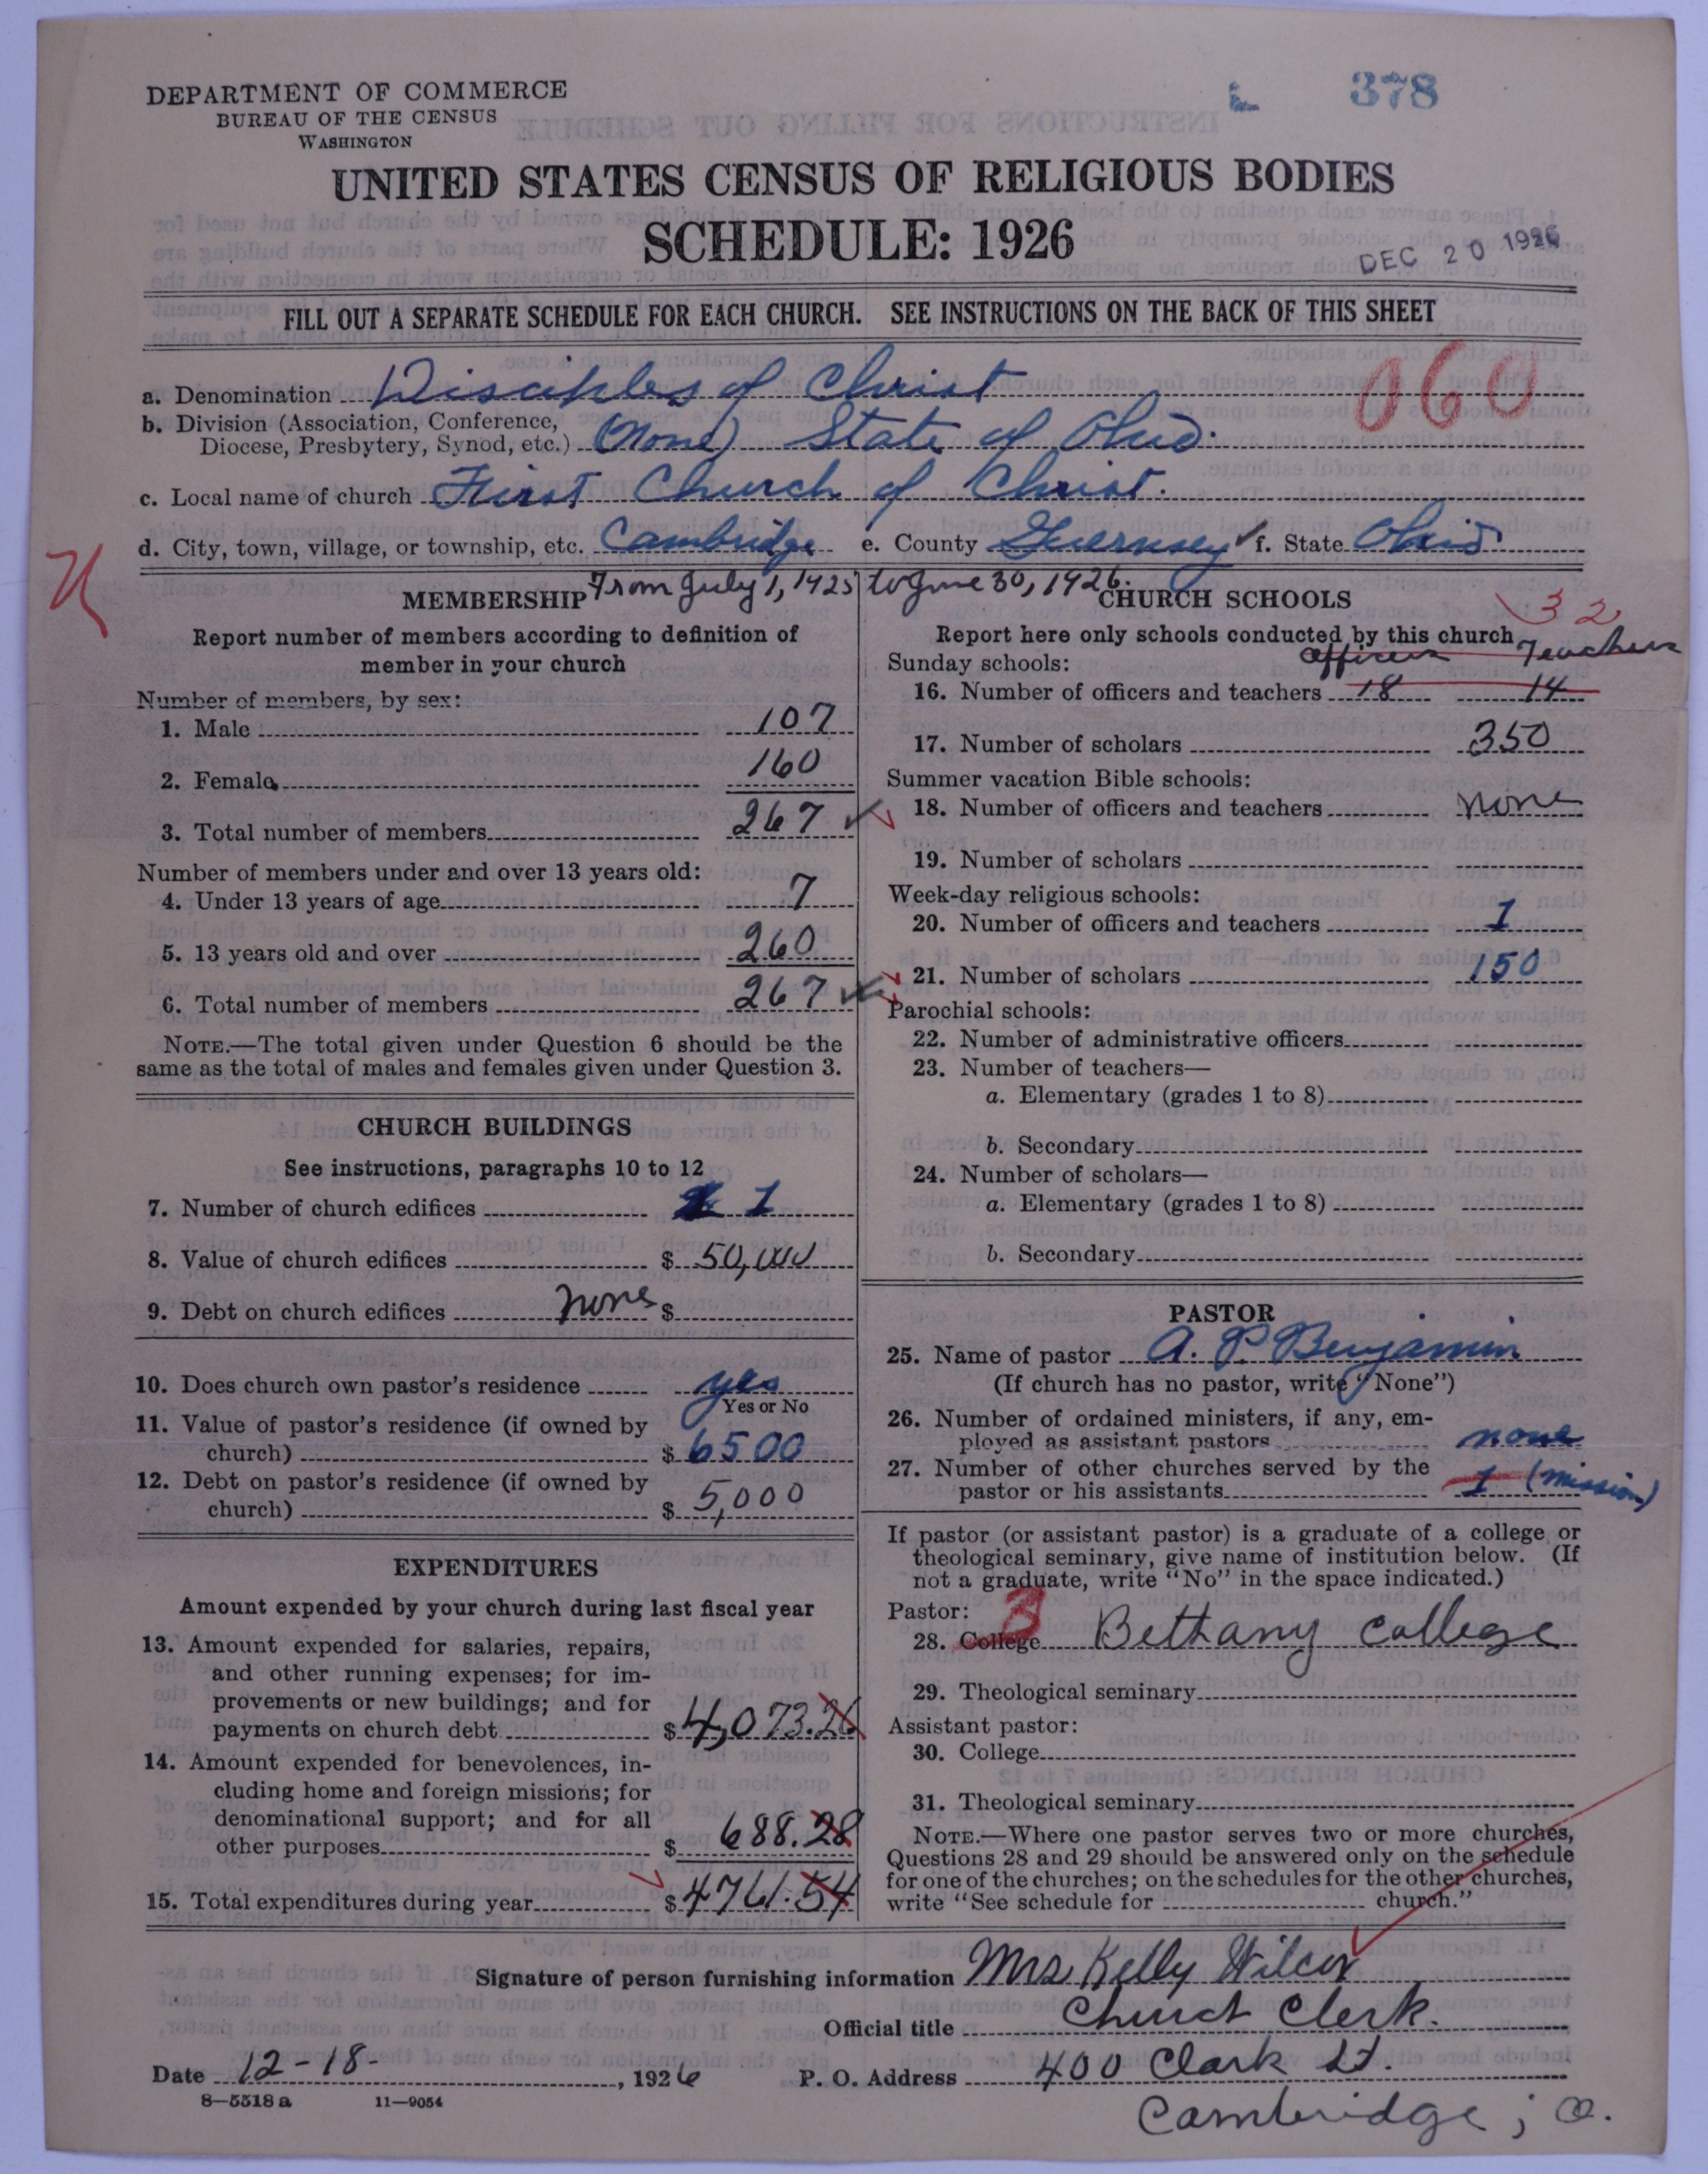 378
DEPARTMENT OF COMMERCE
BUREAU OF THE CENSUS
WASHINGTON
UNITED STATES CENSUS OF RELIGIOUS BODIES
SCHEDULE: 1926
DEC 20 1926
FILL OUT A SEPARATE SCHEDULE FOR EACH CHURCH. SEE INSTRUCTIONS ON THE BACK OF THIS SHEET
060
a. Denomination Disciples of Christ
b. Division (Association, Conference,
Diocese, Presbytery, Synod, etc.) (None) State of Ohio.
c. Local name of church First Church of Christ.
d. City, town, village, or township, etc. Cambridge e. County Guernsey f. State Ohio
From July 1, 1925 to June 30, 1926.
MEMBERSHIP
Report number of members according to definition of
member in your church
Number of members, by sex:
1. Male 107
2. Female 160
3. Total number of members 267
Number of members under and over 13 years old:
4. Under 13 years of age 7
5. 13 years old and over 260
6. Total number of members 267
NOTE.—The total given under Question 6 should be the
same as the total of males and females given under Question 3.
CHURCH BUILDINGS
See instructions, paragraphs 10 to 12
7. Number of church edifices 1
8. Value of church edifices $ 50,000
9. Debt on church edifices none $
10. Does church own pastor's residence yes
Yes or No
11. Value of pastor's residence (if owned by
church) $ 6500
12. Debt on pastor's residence (if owned by
church) $ 5,000
EXPENDITURES
Amount expended by your church during last fiscal year
13. Amount expended for salaries, repairs,
and other running expenses; for im-
provements or new buildings; and for
payments on church debt $ 4,073.26
14. Amount expended for benevolences, in-
cluding home and foreign missions; for
denominational support; and for all
other purposes $ 688.28
15. Total expenditures during year $ 4761.54
CHURCH SCHOOLS
32
Report here only schools conducted by this church
Officers Teachers
Sunday schools:
16. Number of officers and teachers 18 14
17. Number of scholars 350
Summer vacation Bible schools:
18. Number of officers and teachers None
19. Number of scholars
Week-day religious schools:
20. Number of officers and teachers 1
21. Number of scholars 150
Parochial schools:
22. Number of administrative officers
23. Number of teachers—
a. Elementary (grades 1 to 8)
b. Secondary
24. Number of scholars—
a. Elementary (grades 1 to 8)
b. Secondary
PASTOR
25. Name of pastor A. P. Benjamin
(If church has no pastor, write "None")
26. Number of ordained ministers, if any, em-
ployed as assistant pastors none
27. Number of other churches served by the
pastor or his assistants 1 (mission)
If pastor (or assistant pastor) is a graduate of a college or
theological seminary, give name of institution below. (If
not a graduate, write "No" in the space indicated.)
Pastor: 3
28. College Bethany College
29. Theological seminary
Assistant pastor:
30. College
31. Theological seminary
NOTE.—Where one pastor serves two or more churches,
Questions 28 and 29 should be answered only on the schedule
for one of the churches; on the schedules for the other churches,
write "See schedule for church."
Signature of person furnishing information Mrs Kelly Wilcox
Official title Church Clerk.
Date 12-18- , 1926 P. O. Address 400 Clark St.
8—5518 a 11—9054
Cambridge, O.